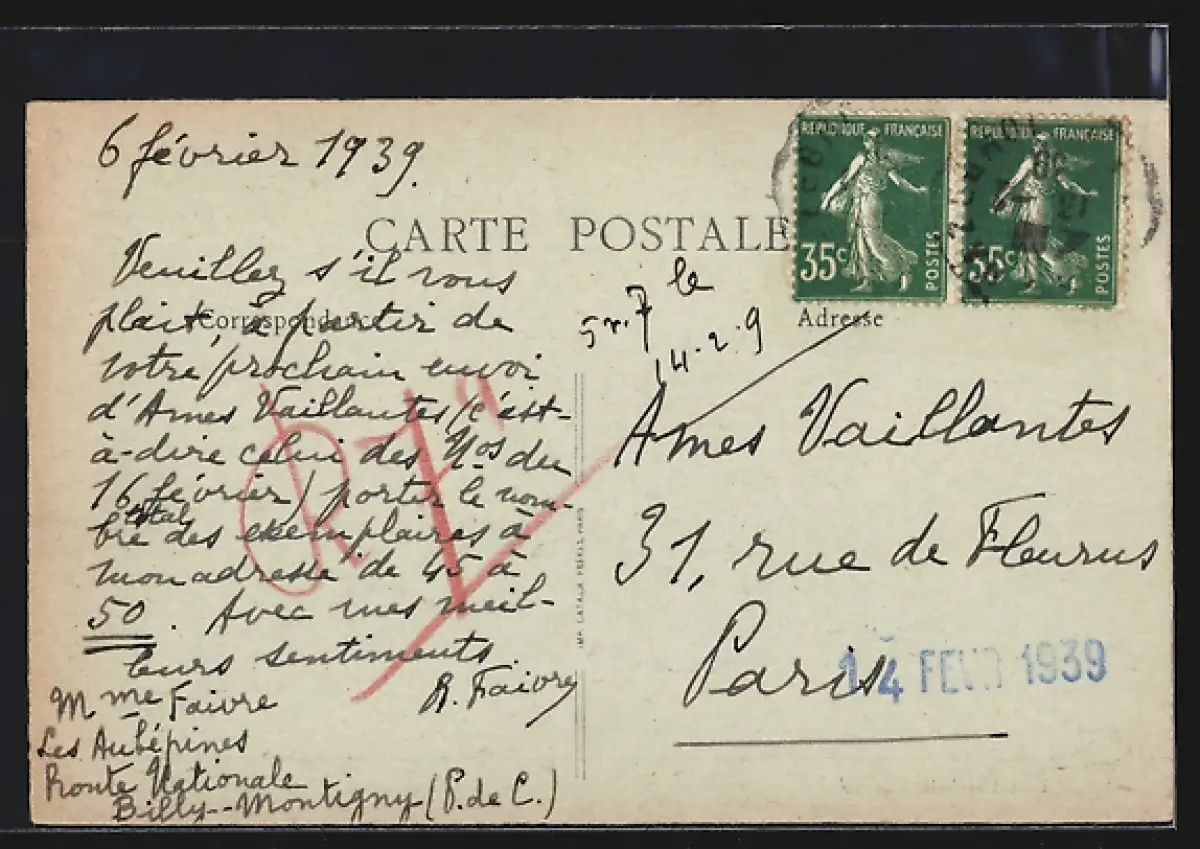 6 février 1939.
CARTE POSTALE
Correspondance
Veuillez s'il vous
plait, à partir de
votre prochain envoi
d'Ames Vaillantes (c'est-
à-dire celui des Nos du
16 février) porter le nom-
bre total des exemplaires à
mon adresse de 45 à
50. Avec mes meil-
leurs sentiments.
R. Faivre
Mme Faivre
Les Aubépines
Route Nationale
Billy-Montigny (P. de C.)
IMP. CATALA FRÈRES, PARIS
REPUBLIQUE FRANÇAISE
35c
POSTES
REPUBLIQUE FRANÇAISE
35c
POSTES
le
14.2.9
Adresse
Ames Vaillantes
31, rue de Fleurus
Paris
14 FEVR 1939